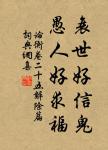 衰世好信鬼
愚人好求福
論衡卷二十五解除篇
詞典網集